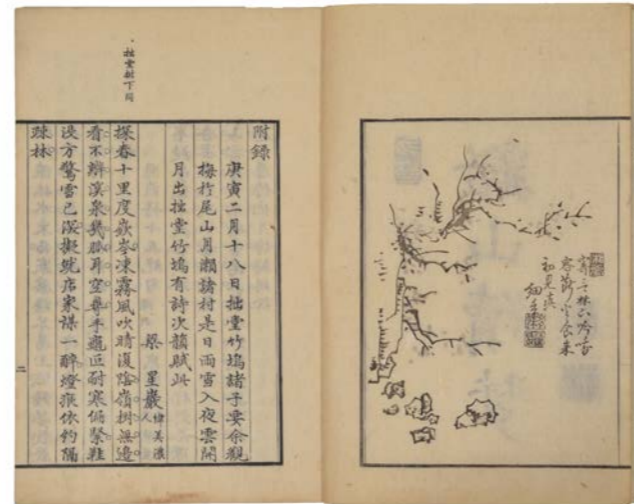 初見真
拙堂下同
附錄
庚寅二月十八日拙堂竹塢諸子要余觀
梅於尾山月瀨諸村是日雨雪入夜雲開
月出拙堂竹塢有詩次韻賦此
梁 星巖 美濃人
探春十里度嶔岑凍霧風吹晴復陰嶺樹無邊
看不辨溪泉幾派耳空尋手龜叵耐寒偏緊鞋
沒方驚雪已深擬就店家謀一醉燈痕依約隔
疎林
二